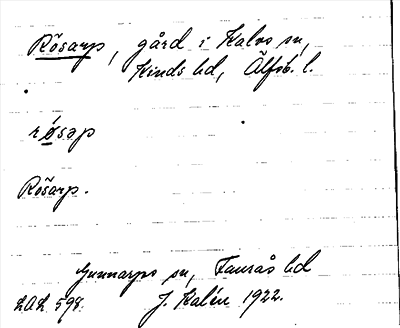 Rösarp, gård i Kalvs sn,
Kinds hd, Älfsb. l.
rösap
Rösarp.
Gunnarps sn, Faurås hd
LAL 598. J. Kalén 1922.